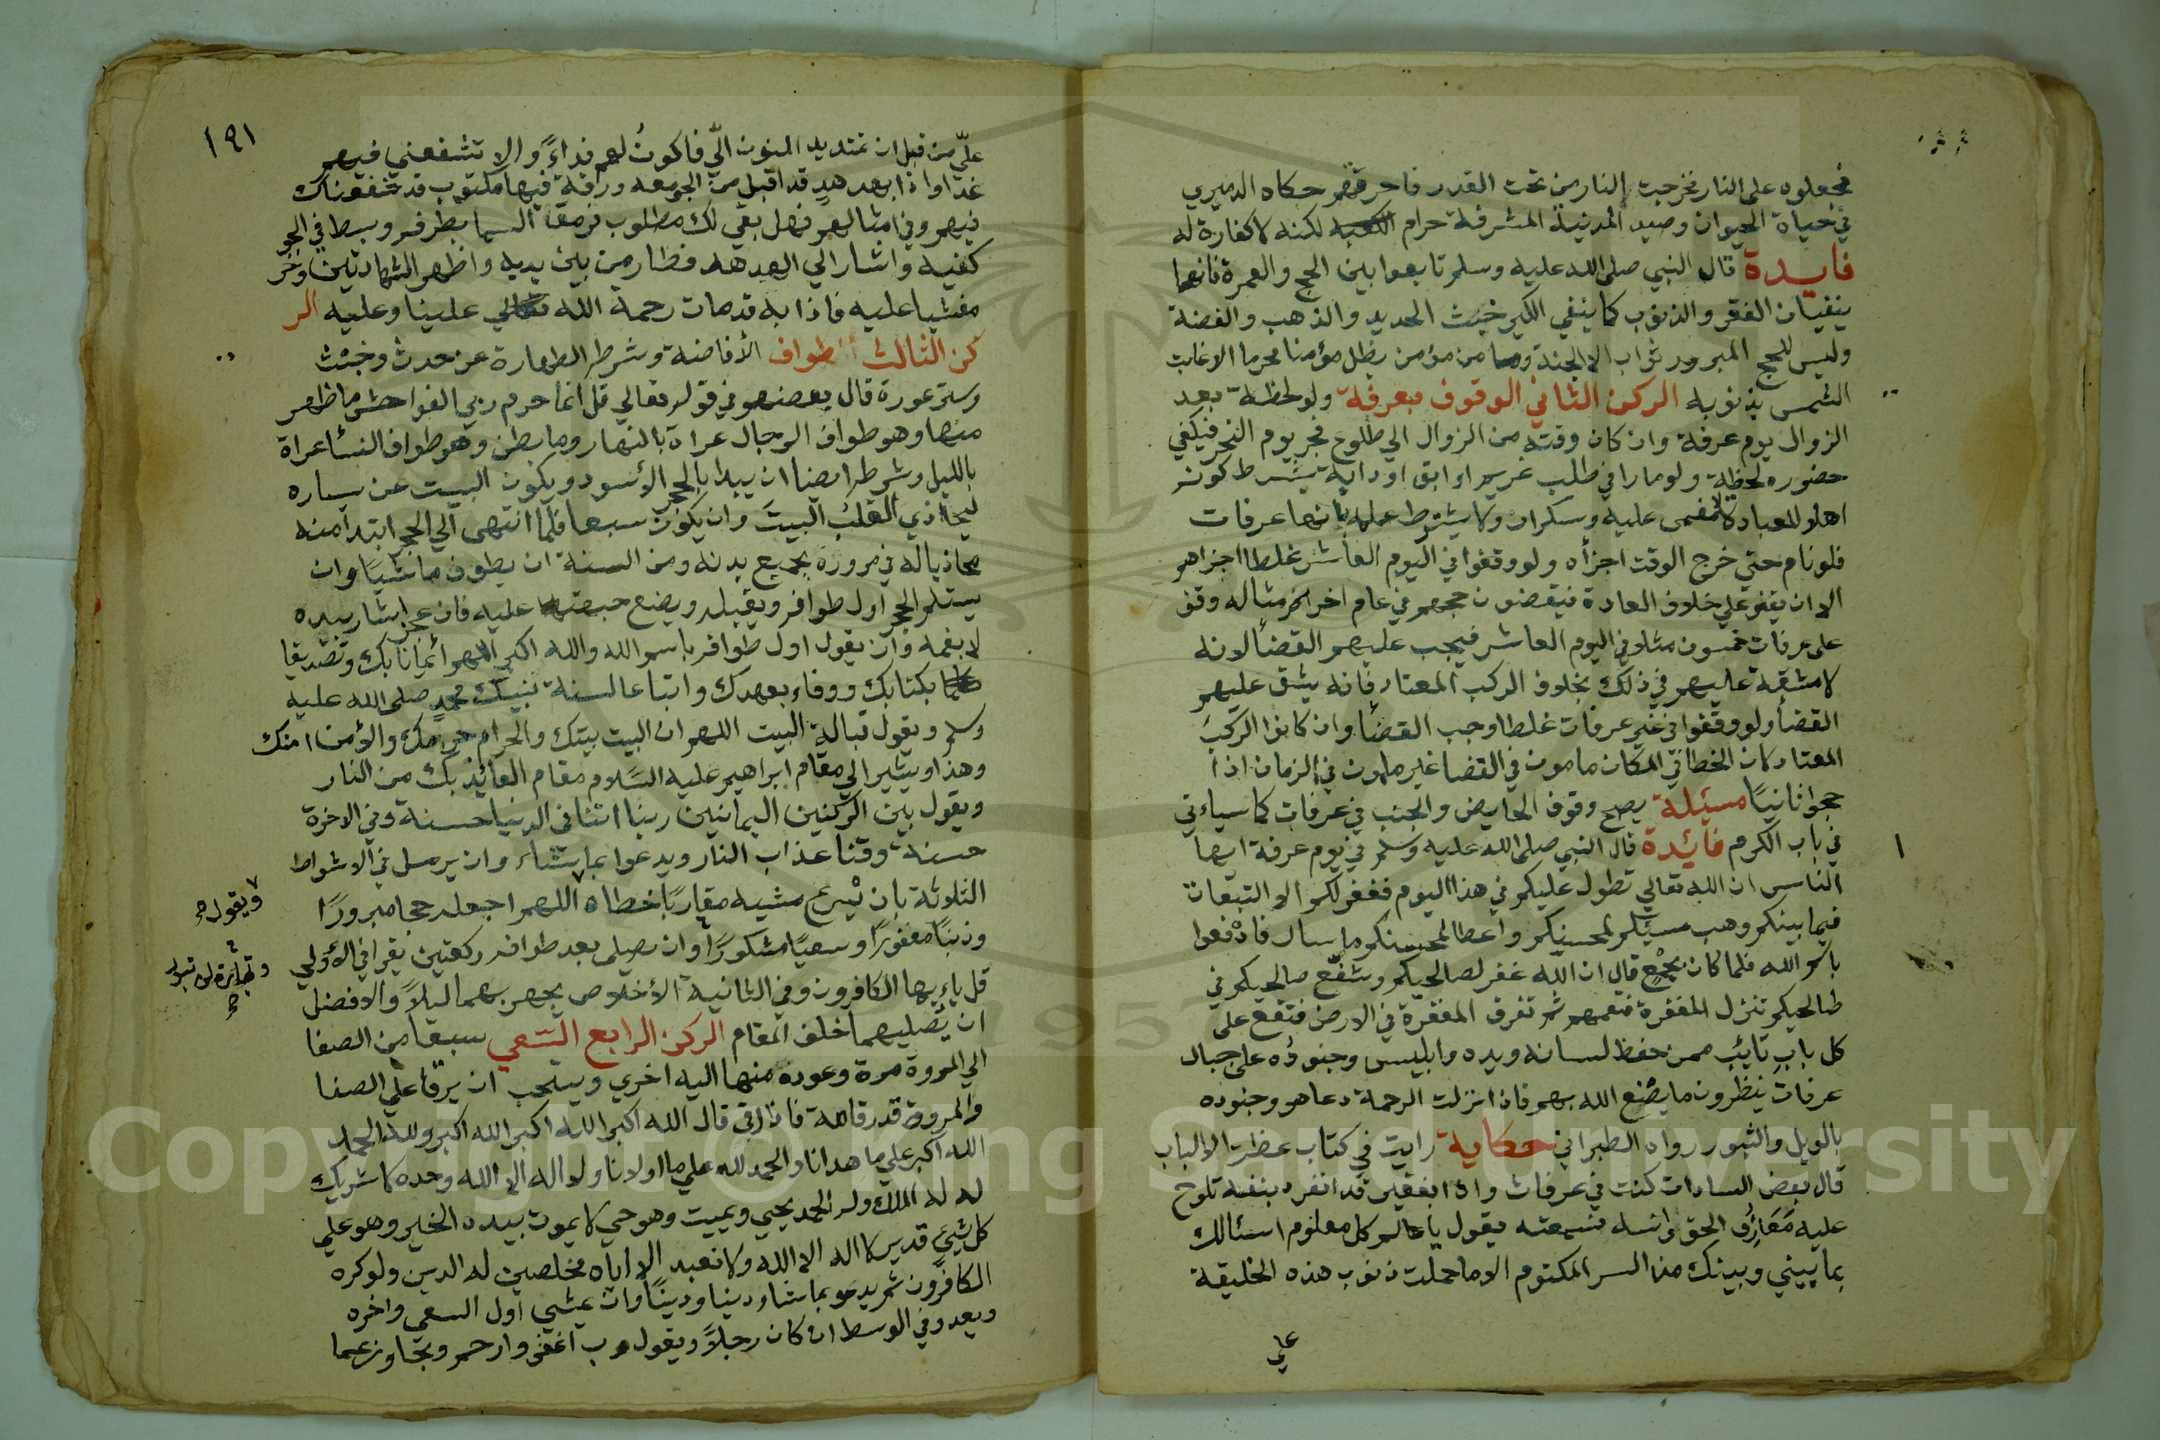 فجعلوه على النار فخرجت النار من تحت القدر فاحرقتهم حكاه الدميري
في حياة الحيوان وصيد المدينة المشرفة حرام لكنه لا كفارة له
فايدة قال النبي صلى الله عليه وسلم تابعوا بين الحج والعمرة فانهما
ينفيان الفقر والذنوب كما ينفي الكير خبث الحديد والذهب والفضة
وليس للحج المبرور ثواب الا الجنة وما من مؤمن يظل مؤمنا محرما الا غابت
الشمس بذنوبه الركن الثاني الوقوف بعرفة ولو لحظة بعد
الزوال يوم عرفة وان كان وقته من الزوال الي طلوع فجر يوم النحر فيكفي
حضوره لحظة ولو مارا في طلب غريم او ابق او دابة بشرط كونه
اهلا للعبادة لا مغمى عليه وسكران ولا يشترط علمه بانها عرفات
فلو نام حتى خرج الوقت اجزأه ولو وقفوا في اليوم العاشر غلطا اجزاهم
الا ان يقلوا علي خلاف العادة فيقضون حجهم في عام اخر مثاله وقف
على عرفات خمسون مثلا في اليوم العاشر فيجب عليهم القضأ لانه
لا مشقة عليهم في ذلك بخلاف الركب المعتاد فانه يشق عليهم
القضأ ولو وقفوا في غير عرفات غلطا وجب القضأ وان كانوا الركب
المعتاد لان الخطأ في المكان مامون في القضا غير مامون في الزمان اذا
حجوا ثانيا مسئلة يصح وقوف الحايض والجنب في عرفات كما سياءتي
في باب الكرم فائدة قال النبي صلى الله عليه وسلم في يوم عرفة ايها
الناس ان الله تعالي تطول عليكم في هذا اليوم فغفر لكم الا التبعات
فيما بينكم وهب مسيئكم لمحسنكم واعطا لمحسنكم ما سال فادفعوا
باسم الله فلما كان بجمع قال ان الله غفر لصالحيكم وشفع صالحيكم في
طالحيكم تنزل المغفرة فتعمهم ثم تفرق المغفرة في الارض فتقع على
كل باب تايب ممن حفظ لسانه ويده وابليس وجنوده على جبال
عرفات ينظرون ما يصنع الله بهم فاذا نزلت الرحمة دعا هو وجنوده
بالويل والثبور رواه الطبراني حكاية رايت في كتاب عظة الالباب
قال بعض السادات كنت في عرفات واذا بفقير قد انفرد بنفسه تلوح
عليه معارف الحق وانسه فسمعته يقول يا عالم كل معلوم اسئالك
بما بيني وبينك من السر المكتوم الا ما حملت ذنوب هذه الخليقة
علي
١٩١
علي من قبل ان تمتد يد المنون الي فاكون لهم فداء والا تشفعني فيهم
غدا واذا بهدهد قد اقبل من الجو معه ورقة فيها مكتوب قد شفعناك
فيهم وفي امثالهم فهل بقي لك مطلوب فرمق السما بطرفه وبسط في الجو
كفيه واشار الي الهدهد فطار من بين يديه واظهر الشهادتين وخر
مغشيا عليه فاذا به قد مات رحمة الله تعالي علينا وعليه الر
كن الثالث الطواف الأفاضة وشرطه الطهارة عن حدث وخبث
وستر عورة قال بعضهم في قوله تعالي قل انما حرم ربي الفواحش ما ظهر
منها وهو طواف الرجال عراة بالنهار وما بطن وهو طواف النسا عراة
بالليل وشرطه ايضا ان يبدا بالحجر الأسود ويكون البيت عن يساره
ليحاذي القلب البيت وان يكون سبعا فلما انتهى الي الحجر ابتدا منه
محاذيا له في مروره بجميع بدنه ومن السنة ان يطوف ماشيا وان
يستلم الحجر اول طوافه ويقبله ويضع جبهته عليه فان عجز اشار بيده
لا بفمه وان يقول اول طوافه باسم الله والله اكبر اللهم ايمانا بك وتصديقا
بكتابك ووفاء بعهدك واتباعا لسنة نبيك محمد صلى الله عليه
وسلم ويقول قبالة البيت اللهم ان البيت بيتك والحرام حرمك والأمن امنك
وهذا ويشير الي مقام ابراهيم عليه السلام مقام العائذ بك من النار
ويقول بين الركنين اليمانيين ربنا اتنا في الدنيا حسنة وفي الاخرة
حسنة وقنا عذاب النار ويدعوا بما يشاء وان يرمل في الاشواط
الثلاثة بان يسرع مشيه مقاربا خطاه اللهم اجعله حجا مبرورا
ويقول
وذنبا مغفورا وسعيا مشكورا وان يصلي بعد طوافه ركعتين يقرا في الأولي
وتجارة لن تبور
قل ياءيها الكافرون وفي الثانية الأخلاص يجهر بهما ليلا والافضل
ان يصليهما خلف المقام الركن الرابع السعي سبعا من الصفا
الي المروة مرة وعوده منها اليه اخري ويستحب ان يرقأ علي الصفا
والمروة قدر قامة فاذا رقي قال الله اكبر الله اكبر الله اكبر ولله الحمد
الله اكبر علي ما هدانا والحمد لله علي ما اولانا ولا اله الا الله وحده لا شريك
له له الملك وله الحمد يحيي ويميت وهو حي لا يموت بيده الخير وهو علي
كل شيء قدير لا اله الا الله ولا نعبد الا اياه مخلصين له الدين ولو كره
الكافرون ثم يدعو بما شاء دينا ودنيا وان يمشي اول السعي واخره
ويعدو في الوسط ان كان رجلا ويقول رب اغفر وارحم وتجاوز عما
Copyright © King Saud University